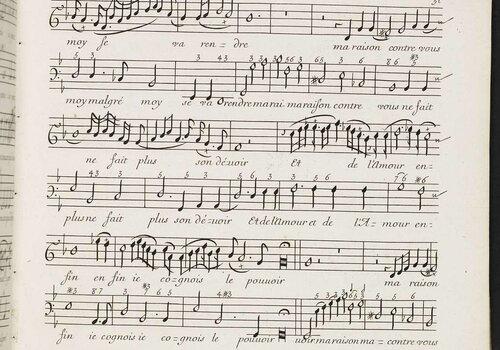 moy se va ren= dre ma raison contre vous
moy malgré moy se va O rendre ma rai. ma raison contre vous ne fait
ne fait plus son déuoir Et de l'Amour en-
plus ne fait plus son déuoir Et de l'Amour et de l'A= mour en-
fin en fin ie co=gnois le pouuoir ma raison
fin ie cognois ie co=gnois le pouuoir uoir ma raison ma= contre vous